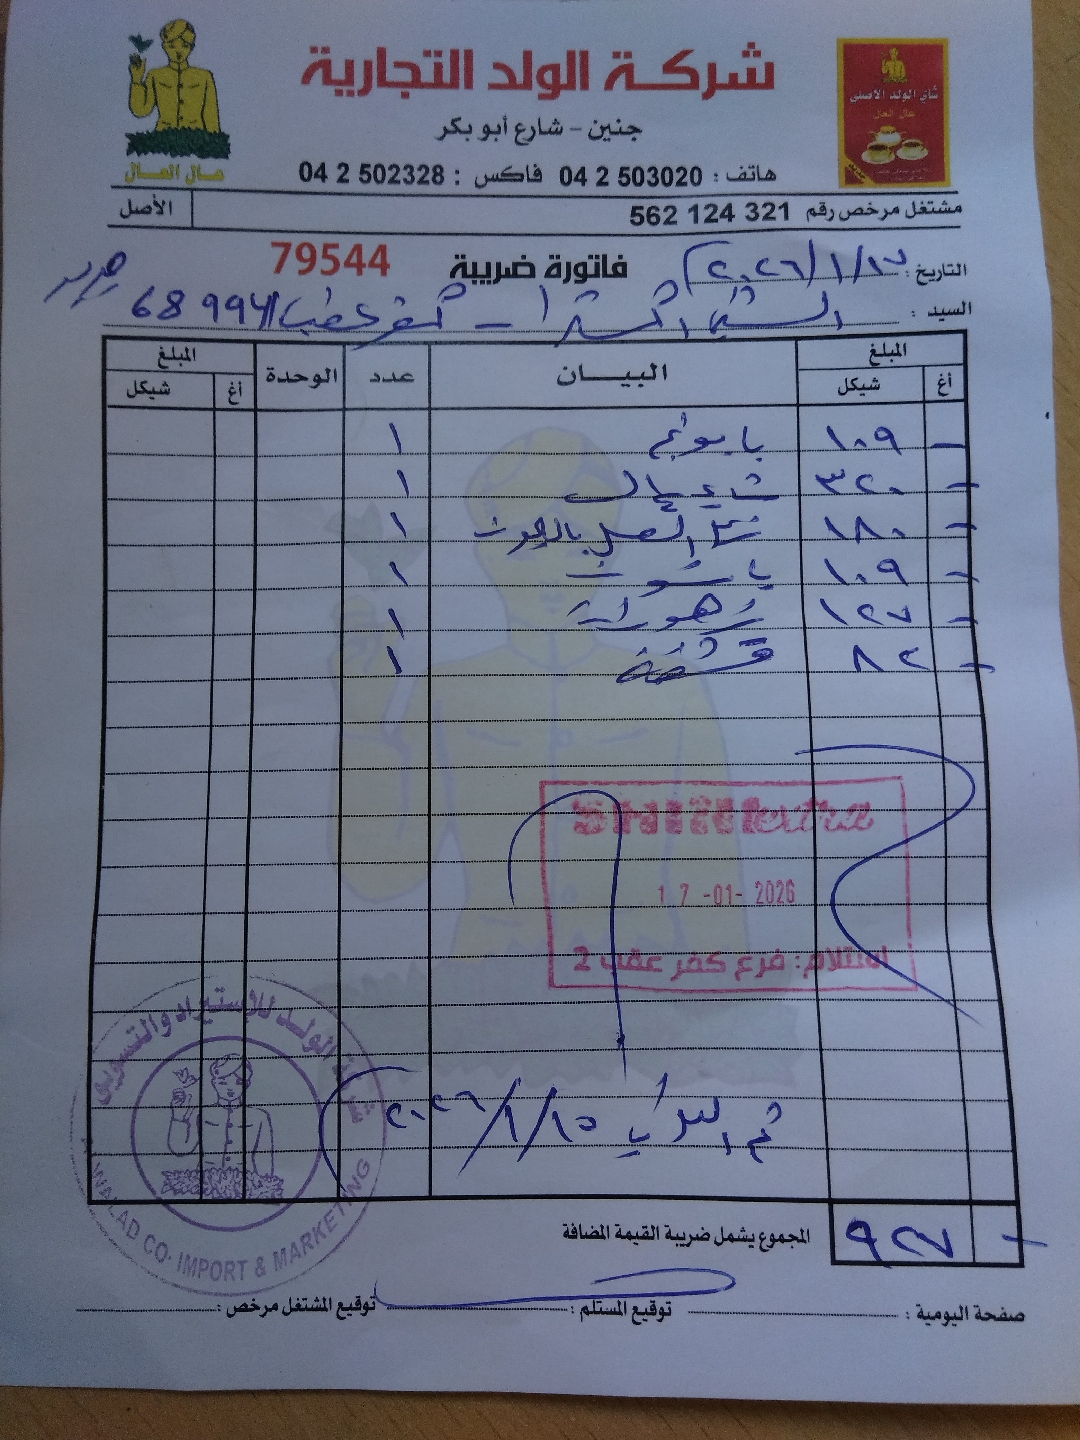 شركة الولد التجارية
جنين - شارع أبو بكر
هاتف : 04 2 503020 فاكس : 04 2 502328
عال العال
شاي الولد الأصلي
عال العال
مشتغل مرخص رقم 562 124 321
الأصل
التاريخ : ٢٠٢٦/١/١٧
فاتورة ضريبة 79544
السيد : - كفر عقب 68994
المبلغ البيـــان عدد الوحدة المبلغ
أغ شيكل أغ شيكل
١٠٩ - بابونج ١
٣٢٠ - ١
١٨٠ - ١
١٠٩ - ١
١٢٧ - زهورات ١
٨٢ - قرفة ١
17-01-2026
استلام: فرع كفر عقب 2
٢٠٢٦/١/١٥
شركة الولد للإستيراد والتسويق
WALAD CO. IMPORT & MARKETING
المجموع يشمل ضريبة القيمة المضافة ٩٢٧ -
صفحة اليومية : توقيع المستلم : توقيع المشتغل مرخص :